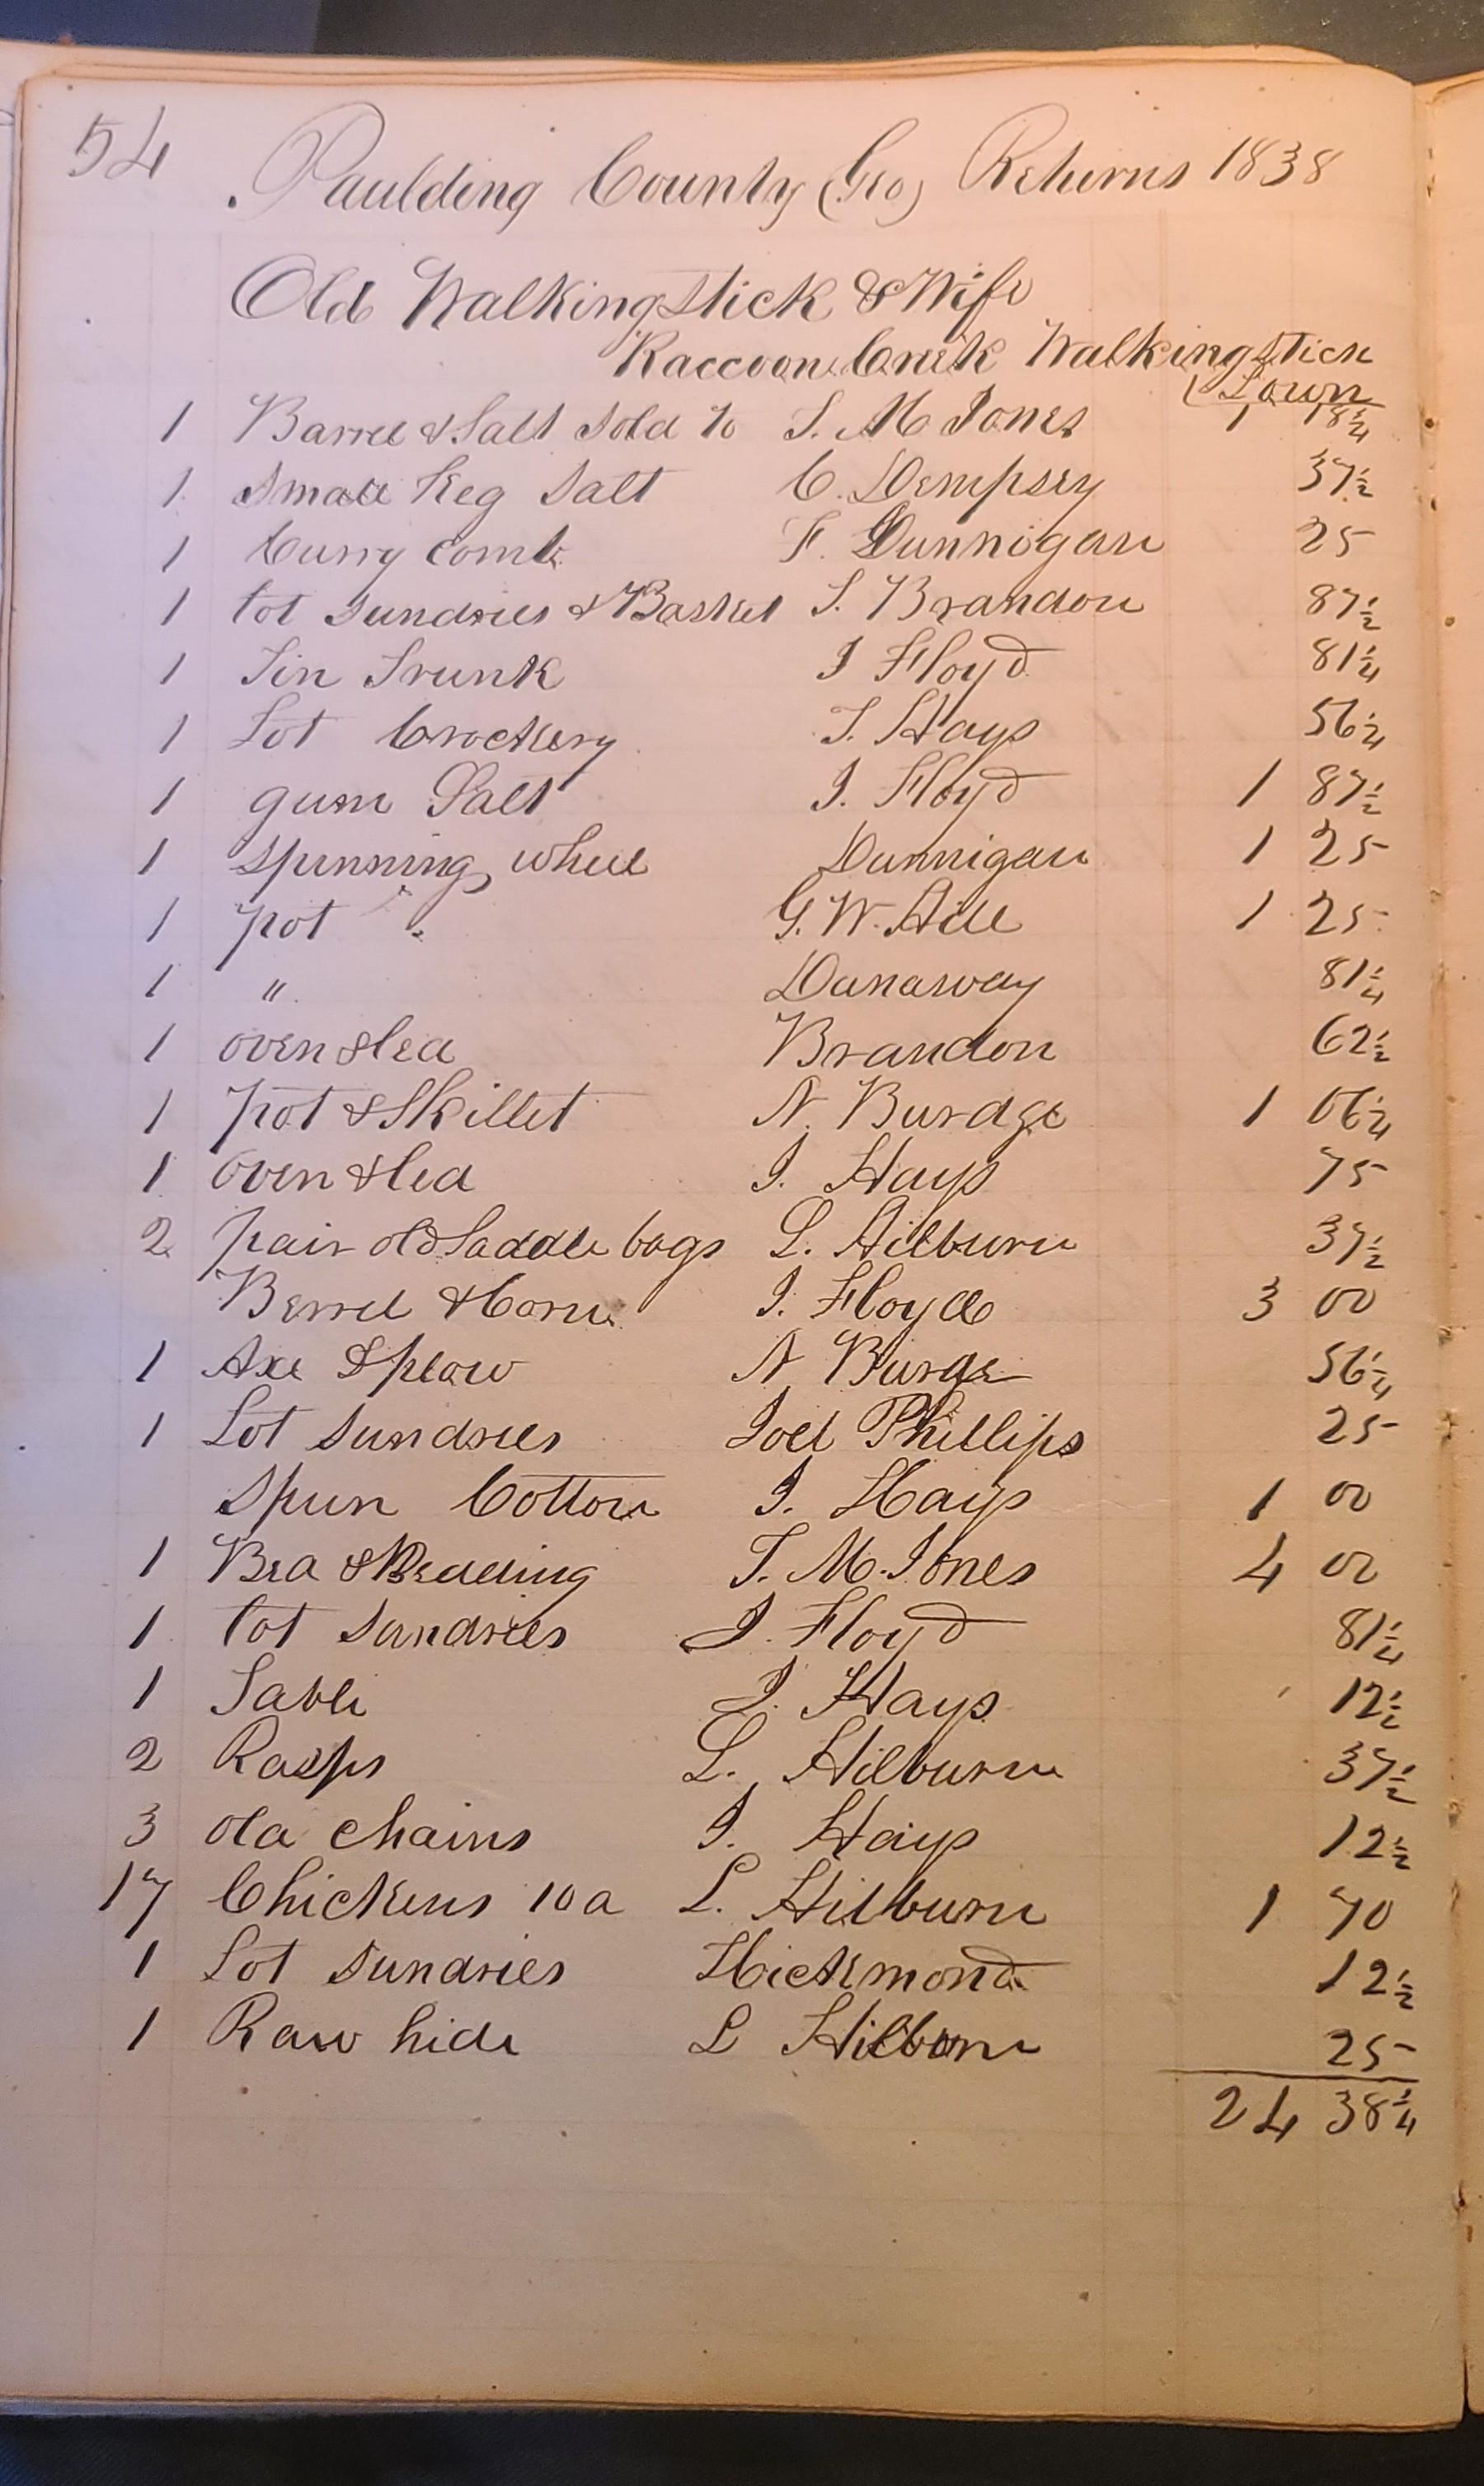 54
Paulding County (Geo) Returns 1838
Old Walkingstick & Wife
Raccoon Creek Walkingstick
Town
1 Barrel & Salt Sold to T. M Jones 1 18 3/4
1 Small Keg Salt C. Dempsey 37 1/2
1 Curry Comb F. Dunnigan 25
1 Lot Sundries & Basket T. Brandon 87 1/2
1 Tin Trunk J Floyd 81 1/4
1 Lot Crockery T. Hays 56 1/4
1 gum Salt J. Floyd 1 87 1/2
1 Spinning wheel Dunnigan 1 25
1 pot G. W. Hill 1 25
1 " Danaway 81 1/4
1 oven & lid Brandon 62 1/2
1 pot & Skillet N. Burdge 1 06 1/4
1 oven & lid J. Hays 75
2 pair old Saddle bags L. Hilburn 37 1/2
Berrel & Corn J. Floyd 3 00
1 Axe & plow N Burge 56 1/4
1 Lot Sundries Joel Phillips 25
Spun Cotton J. Hays 1 00
1 Bed & Bedding T. M. Jones 4 00
1 Lot Sundries J. Floyd 81 1/4
1 Table J. Hays 12 1/2
2 Rasps L. Hilburn 37 1/2
3 old chains J. Hays 12 1/2
17 Chickens 10a L. Hilburn 1 70
1 Lot Sundries Hickmond 12 1/2
1 Raw hide L Hilburn 25
24 38 3/4